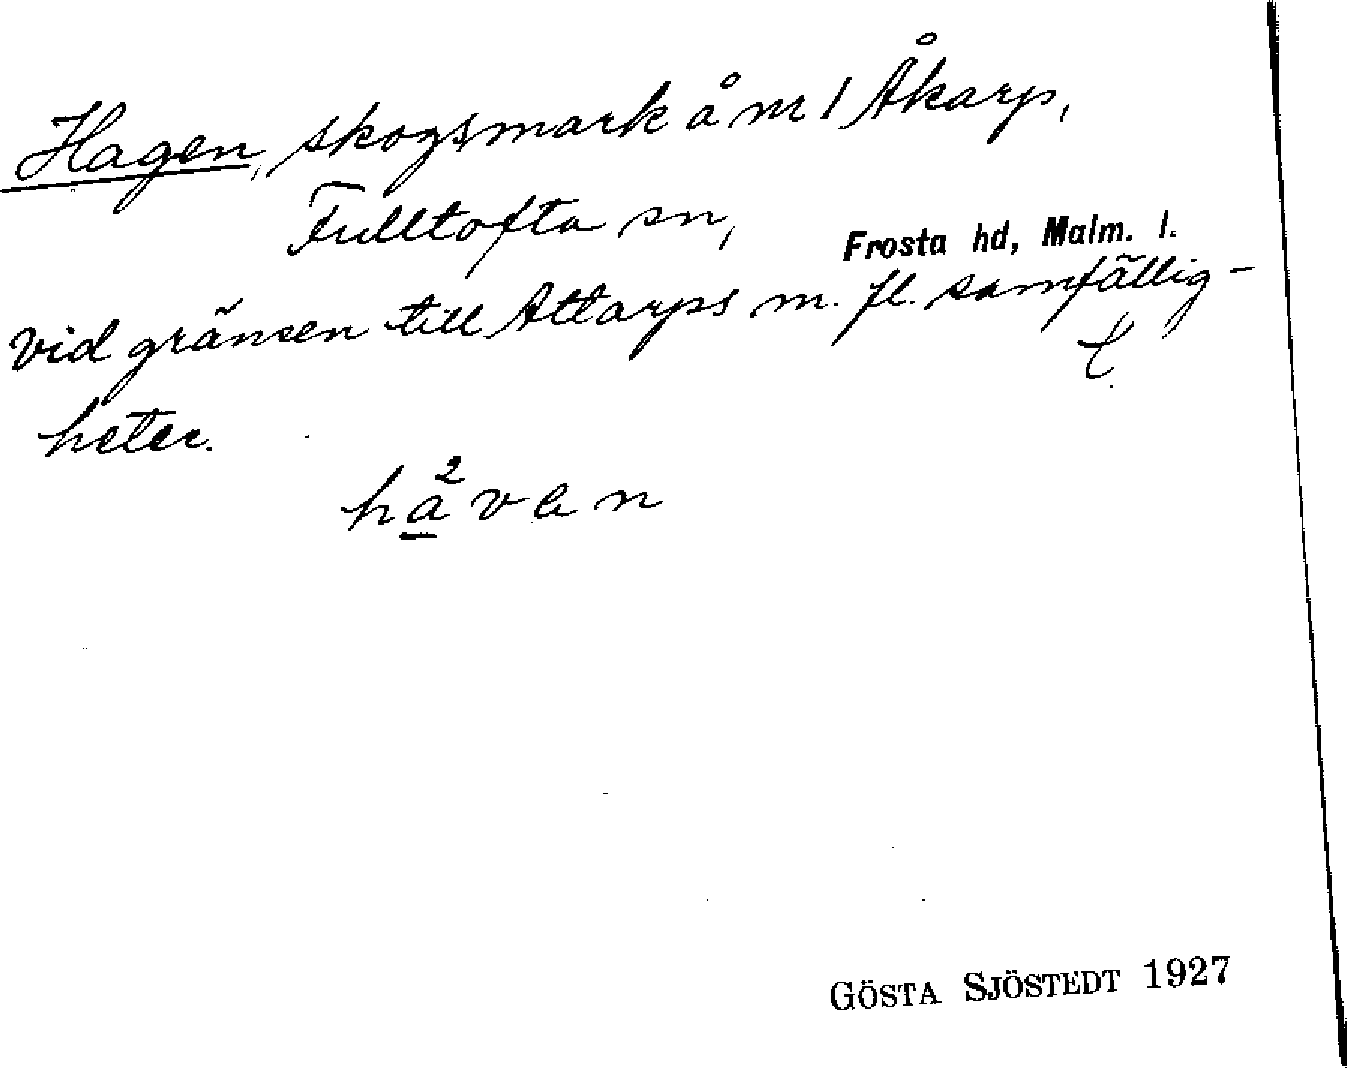 Hagen, skogsmark å nr 1 Åkarp,
Fulltofta sn, Frosta hd, Malm. l.
vid gränsen till Attarps m. fl. samfällig-
heter.
GÖSTA SJÖSTEDT 1927